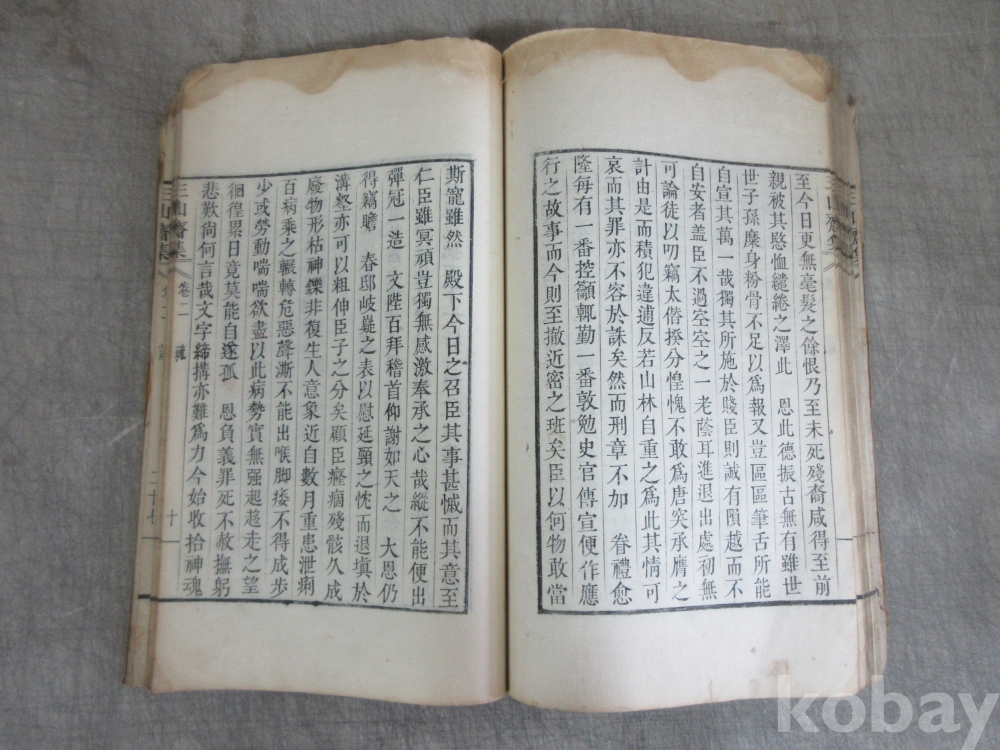 至今日更無毫髮之餘恨乃至未死殘裔咸得至前
親被其愍恤繾綣之澤此 恩此德振古無有雖世
世子孫糜身粉骨不足以爲報又豈區區筆舌所能
自宣其萬一哉獨其所施於賤臣則誠有隕越而不
自安者盖臣不過空空之一老蔭耳進退出處初無
可論徒以叨竊太僣揆分惶愧不敢爲唐突承膺之
計由是而積犯違逋反若山林自重之爲此其情可
哀而其罪亦不容於誅矣然而刑章不加 眷禮愈
隆每有一番控籲輒勤一番敦勉史官傳宣便作應
行之故事而今則至撤近密之班矣臣以何物敢當
斯寵雖然 殿下今日之召臣其事甚慽而其意至
仁臣雖冥頑豈獨無感激奉承之心哉縱不能便出
彈冠一造 文陛百拜稽首仰謝如天之 大恩仍
得竊瞻 春邸岐嶷之表以慰延頸之忱而退塡於
溝壑亦可以粗伸臣子之分矣顧臣癃痼殘骸久成
廢物形枯神鑠非復生人意象近自數月重患泄痢
百病乘之輾轉危惡聲澌不能出喉脚痿不得成步
少或勞動喘喘欲盡以此病勢實無强起趍走之望
徊徨累日竟莫能自遂孤 恩負義罪死不赦撫躬
悲歎尙何言哉文字締搆亦難爲力今始收拾神魂
三山齋集 卷二 疏 十
二十七
kobay